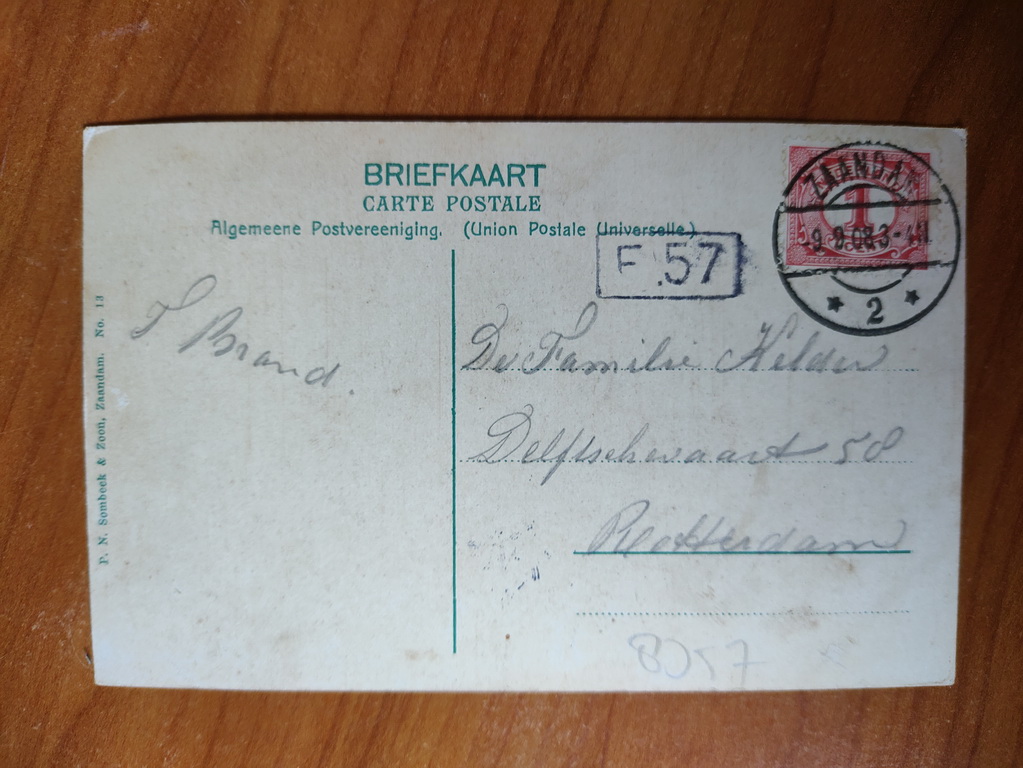 BRIEFKAART
CARTE POSTALE
Algemeene Postvereeniging. (Union Postale Universelle)
ZAANDAM
1
-9.9.08 3-4N
* 2 *
F .57
T Brand.
De Familie Helder
Delftschevaart 58
Rotterdam
P. N. Sombeek & Zoon, Zaandam. No. 13